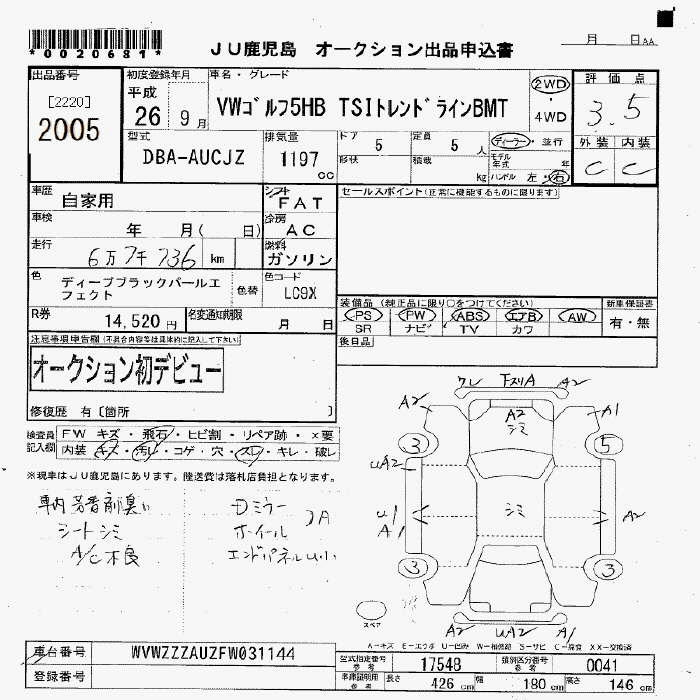 月 日 AA
*0020681*
JU鹿児島 オークション出品申込書
出品番号
[2220]
2005
初度登録年月
平成
26 9月
車名・グレード
VWゴルフ5HB TSIトレンドラインBMT
2WD
・
4WD
評価点
3.5
外装 内装
C C
型式
DBA-AUCJZ
排気量
1197
cc
ドア 5
形状
定員 5 人
積載 kg
ディーラー・並行
モデル年式 年
ハンドル 左・右
車歴 自家用
シフト FAT
セールスポイント(正常に機能するものに限ります)
車検 年 月( 日)
冷房 AC
走行 6万7千736 km
燃料 ガソリン
色 ディープブラックパールエフェクト
色替
色コード LC9X
R券 14,520円
名変通知期限 月 日
装備品(純正品に限り○をつけてください)
PS PW ABS エアB AW
SR ナビ TV カワ
新車保証書
有・無
後日品
注意事項申告欄(不具合内容等は具体的に記入して下さい)
オークション初デビュー
修復歴 有〔箇所 〕
検査員記入欄
FW キズ・飛石・ヒビ割・リペア跡・×要
内装・キズ・汚レ・コゲ・穴・スレ・キレ・破レ
※現車はJU鹿児島にあります。陸送費は落札店負担となります。
車内芳香剤臭い
シートシミ
A/C不良
Dミラー
ホイール
エンドパネルU小
A
ワレ 下スリA A2
A2 A2 A1
シミ
3 5
UA2
U1 シミ A2
A1
3 3
スペア
A2 UA2 A1
A-キズ E-エクボ U-凹ミ W-補修跡 S-サビ C-腐食 XX-交換済
車台番号 WVWZZZAUZFW031144
登録番号
型式指定番号 参考 17548
類別区分番号 参考 0041
車庫証明用 参考
長さ 426 cm
幅 180 cm
高さ 146 cm